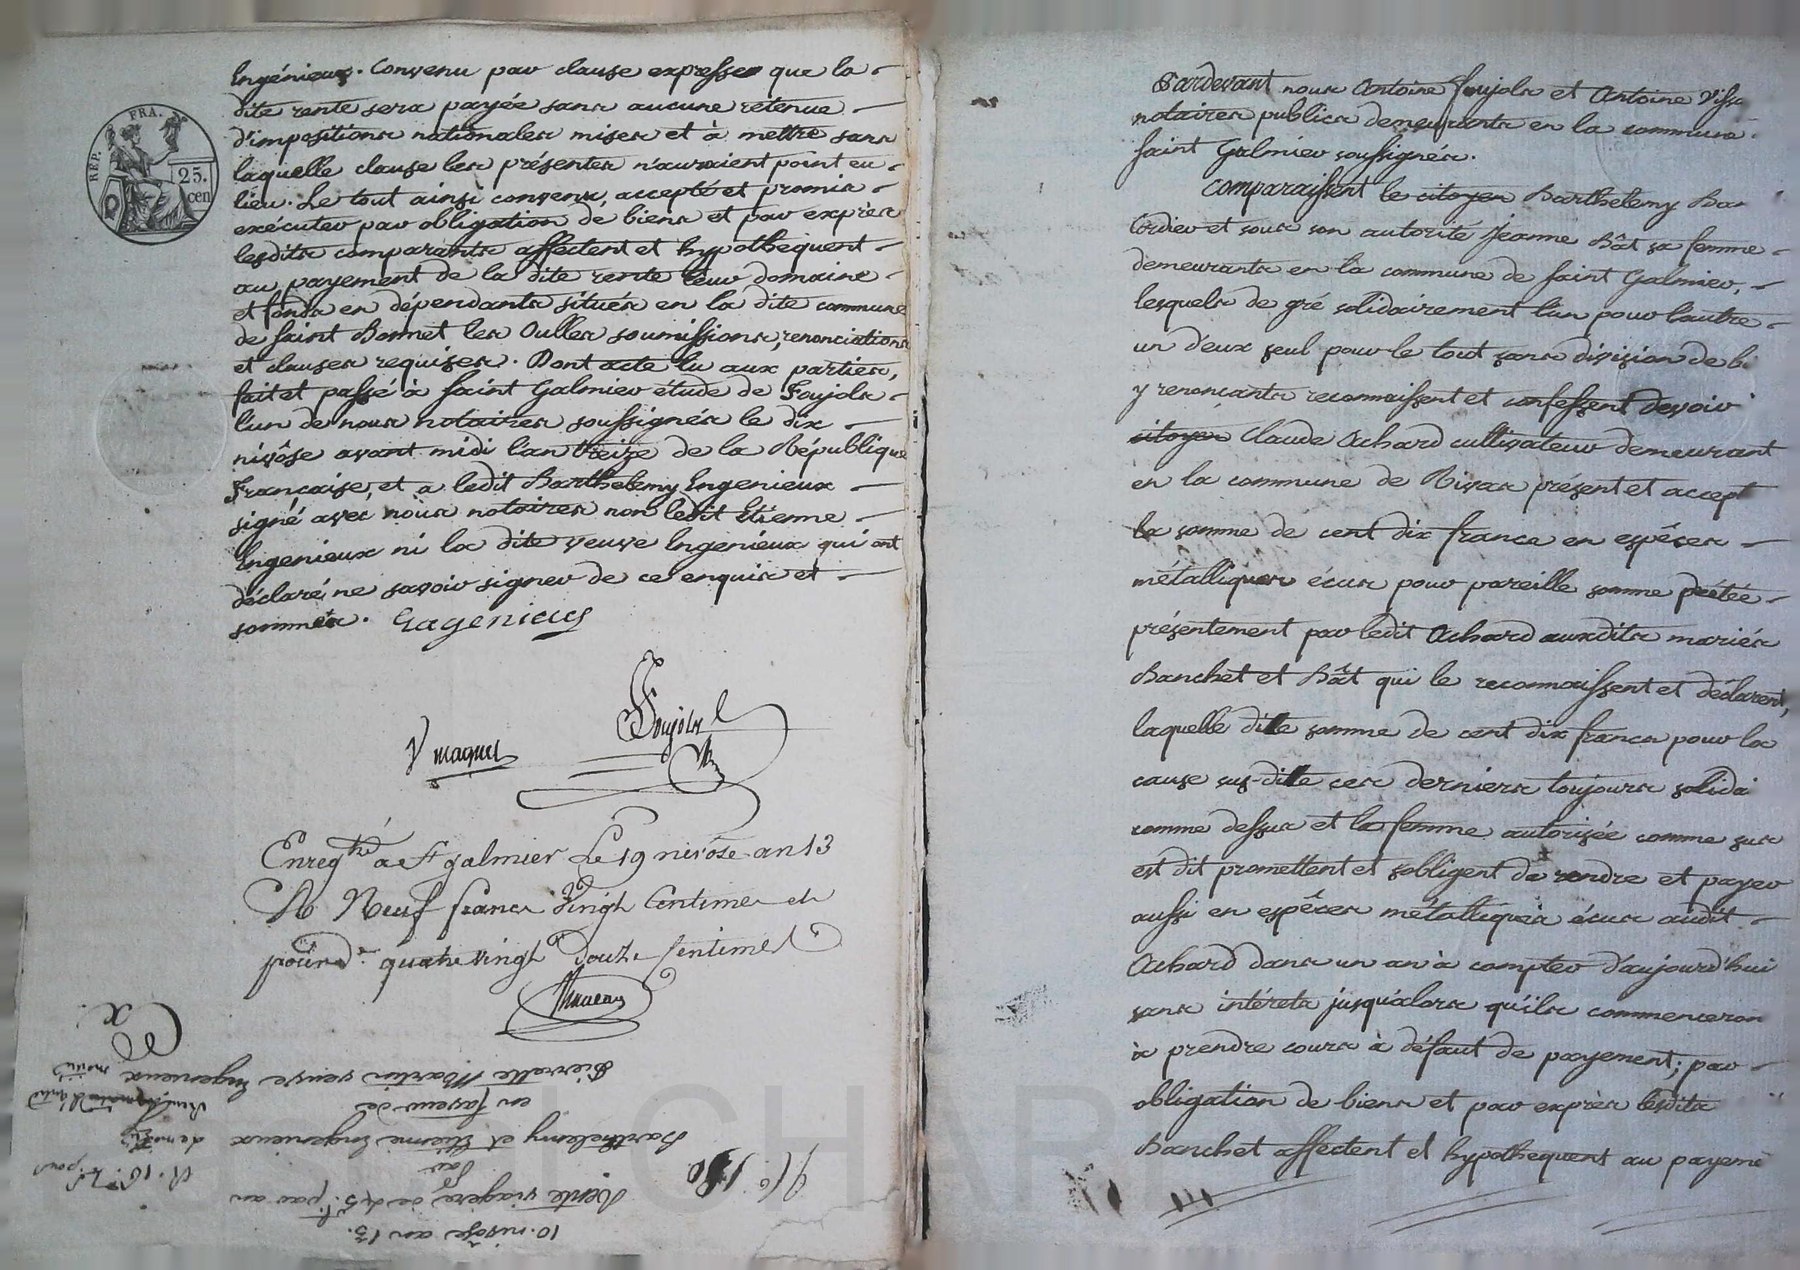 Engénieux. Convenu par clause expresse que la
dite rente sera payée sans aucune retenue
d'impositions nationales mises et à mettre sans
laquelle clause les présentes n'auraient point eu
lieu. Le tout ainsi convenu, accepté et promis
exécuter par obligation de biens et par exprès
lesdits comparants affectent et hypothèquent
au payement de la dite rente leur domaine
et fonds en dépendants situés en la dite commune
de Saint Bonnet les Oulles soumissions, renonciations
et clauses requises. Dont acte lu aux parties,
fait et passé à Saint Galmier étude de Foujols
l'un de nous notaires soussignés le dix
nivôse avant midi l'an treize de la République
Française, et a ledit Barthelemy Engenieux
signé avec nous notaires non ledit Etienne
Engenieux ni la dite veuve Engenieux qui ont
déclaré ne savoir signer de ce enquis et
sommés. Engenieux
REP. FRA.
25.
cen
Foujols
Enregtré a St galmier Le 19 nivose an 13
R Neuf francs Vingt Centimes et
pour Dme quatre vingt Douze Centimes
10. nivôse an 13.
Rente viagère de 45f. par an
par
Barthelemy et Etienne Engenieux
en faveur de
Pierrette Martin veuve Engenieux
Pardevant nous Antoine Foujols et Antoine
notaires publics demeurants en la commune
Saint Galmier soussignés.
Comparaissent le citoyen Barthelemy Ban
Cordier et sous son autorité Jeanne Bât sa femme
demeurants en la commune de Saint Galmier,
lesquels de gré solidairement l'un pour l'autre
un d'eux seul pour le tout sans division de b.
y renonçants reconnaissent et confessent devoir
citoyen Claude Achard cultivateur demeurant
en la commune de Rivas présent et accept
la somme de cent dix francs en espêces
métalliques écus pour pareille somme prêtée
présentement par ledit Achard auxdits mariés
Banchet et Bât qui le reconnaissent et déclarent,
laquelle dite somme de cent dix francs pour la
cause sus-dite ces derniers toujours solidai
comme dessus et la femme autorisée comme sus
est dit promettent et s'obligent de rendre et payer
aussi en espêces métalliques écus audit
Achard dans un an à compter d'aujourd'hui
sans intérets jusqu'alors qu'ils commenceron
à prendre cours à défaut de payement; par
obligation de biens et par exprès lesdits
Banchet affectent et hypothequent au payeme